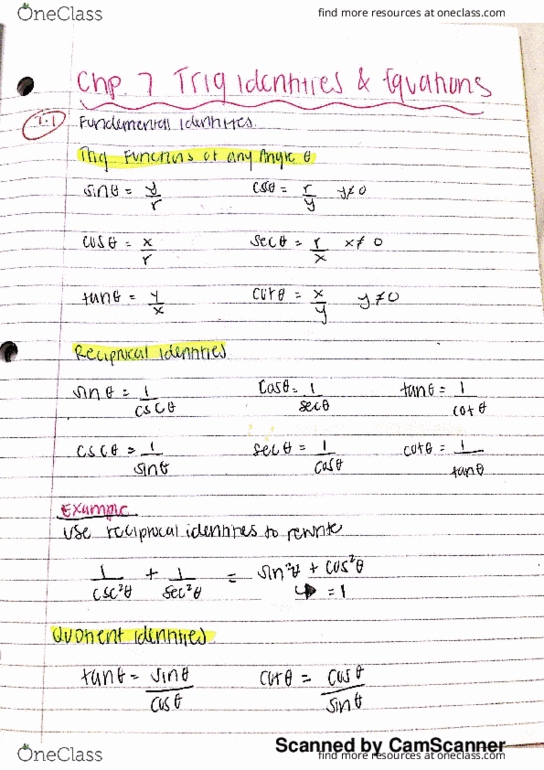 OneClass find more resources at oneclass.com
Chp. 7 Trig Identities & Equations
7.1 Fundemental Identities.
Trig Functions of any Angle θ
sinθ = y/r cscθ = r/y y≠0
cosθ = x/r secθ = r/x x≠0
tanθ = y/x cotθ = x/y y≠0
Reciprocal Identities
sinθ = 1/cscθ cosθ = 1/secθ tanθ = 1/cotθ
cscθ = 1/sinθ secθ = 1/cosθ cotθ = 1/tanθ
Example
Use reciprocal identities to rewrite
1/csc²θ + 1/sec²θ = sin²θ + cos²θ
↳ = 1
Quotient Identities
tanθ = sinθ/cosθ cotθ = cosθ/sinθ
Scanned by CamScanner
OneClass find more resources at oneclass.com